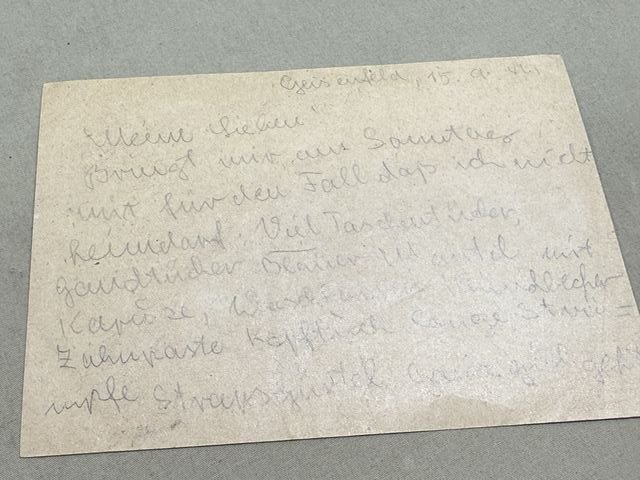 Geisenfeld, 15. 9. 41.
"Meine Lieben"
Bringt mir am Samstag
mit für den Fall daß ich nicht
heimdarf. Viel Taschentücher,
Handtücher blauer Mantel mit
Kapuze, Mundbecher
Zahnpasta Kopftuch lange Strü=
mpfe Strapsgürtel